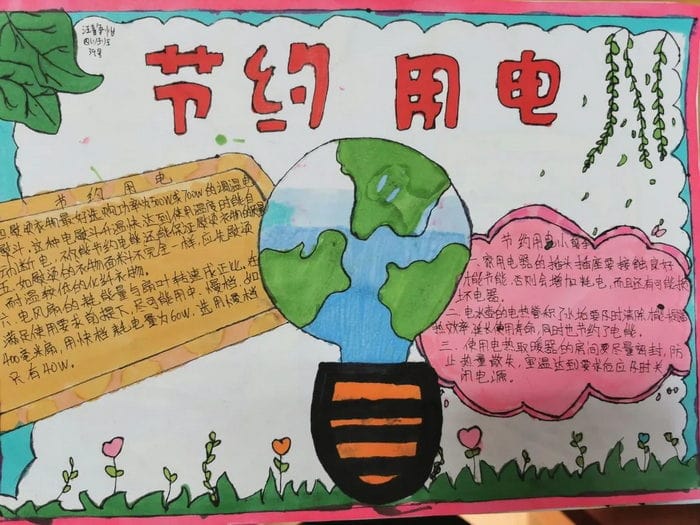 节约用电
节约用电
四熨烫衣物最好选购功率为500W或700W的调温电
熨斗,这种电熨斗升温快达到使用温度时能自
动断电,不仅能节约电能还能保证熨烫衣物的质量
五、如熨烫的衣物面料不完全一样,应先熨烫
耐温较低的化纤衣物。
六电风扇的耗能量与扇叶转速成正比,在
满足使用要求的前提下,尽可能用中、慢档,如
400毫米扇,用快档耗电量为60W,选用慢档
只有40W。
节约用电小
一家用电器的插头插座要接触良好
才能节能,否则会增加耗电,而且还有可能
坏电器。
二、电水壶的电热管积了水垢要及时清除,
热效率,延长使用寿命,同时也节约了电能。
三、使用电热取暖器的房间要尽量密封,防
止热量散失,室温达到要求后应及时关
闭电源。